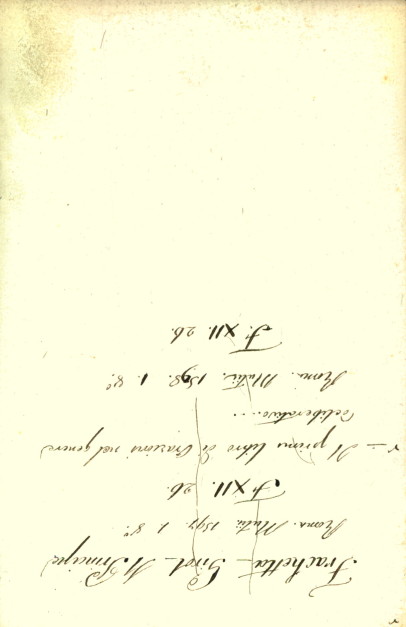 Frachetta Girol. Il Principe
Roma. Mutii. 1597. 1. 8.°
F. XII. 26.
— Il primo libro di Orazioni nel genere
deliberativo....
Roma. Mutii. 1598. 1. 8.°
F. XII. 26.